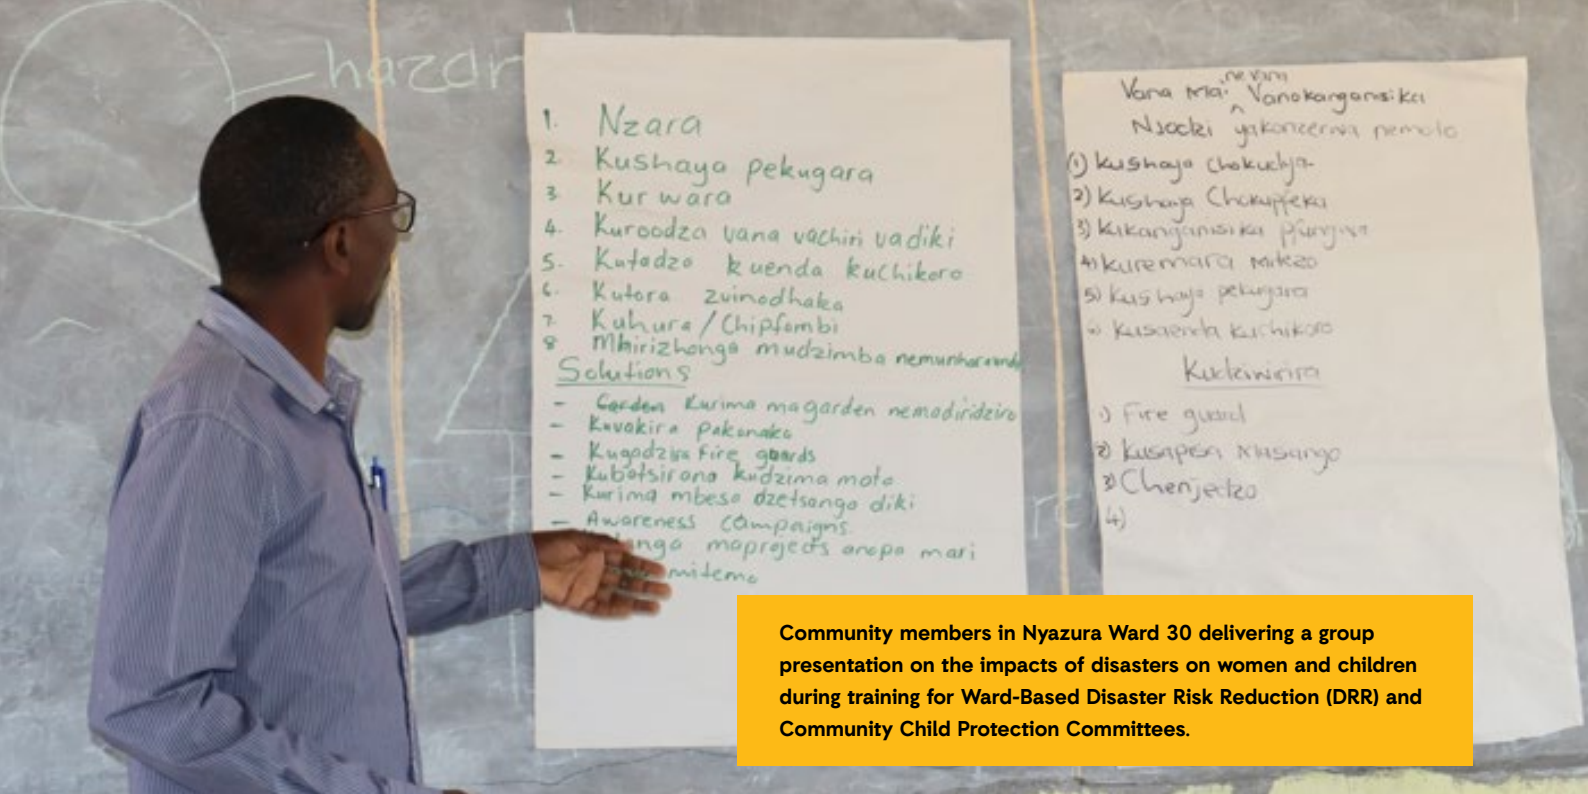 hazar
1. Nzara
2. Kushaya pekugara
3 Kurwara
4. Kuroodza vana vachiri vadiki
5. Kutadza kuenda kuchikoro
6. Kutora zvinodhaka
7. Kuhura/Chipfambi
8 Mhirizhonga mudzimba nemunharaunda
Solutions
- Kurima magarden nemadiridziro
- Kuvakira pakanaka
- Kugadzira Fire guards
- Kubatsirana kudzima moto
- Kurima mbesa dzetsango diki
- Awareness campaigns
maprojects anopa mari
mitemo
nevana
Vana Mai Vanokanganisika
Nsodzi yakonzerwa nemoto
(1) Kushaya chokudya
2) Kushaya Chokupfeka
3) Kukanganisika pfungwa
4) Kuremara mitezo
5) Kushaya pekugara
6) Kusaenda kuchikoro
Kudzivirira
1) Fire guard
2) Kusapisa Masango
3) Chenjedzo
4)
Community members in Nyazura Ward 30 delivering a group
presentation on the impacts of disasters on women and children
during training for Ward-Based Disaster Risk Reduction (DRR) and
Community Child Protection Committees.